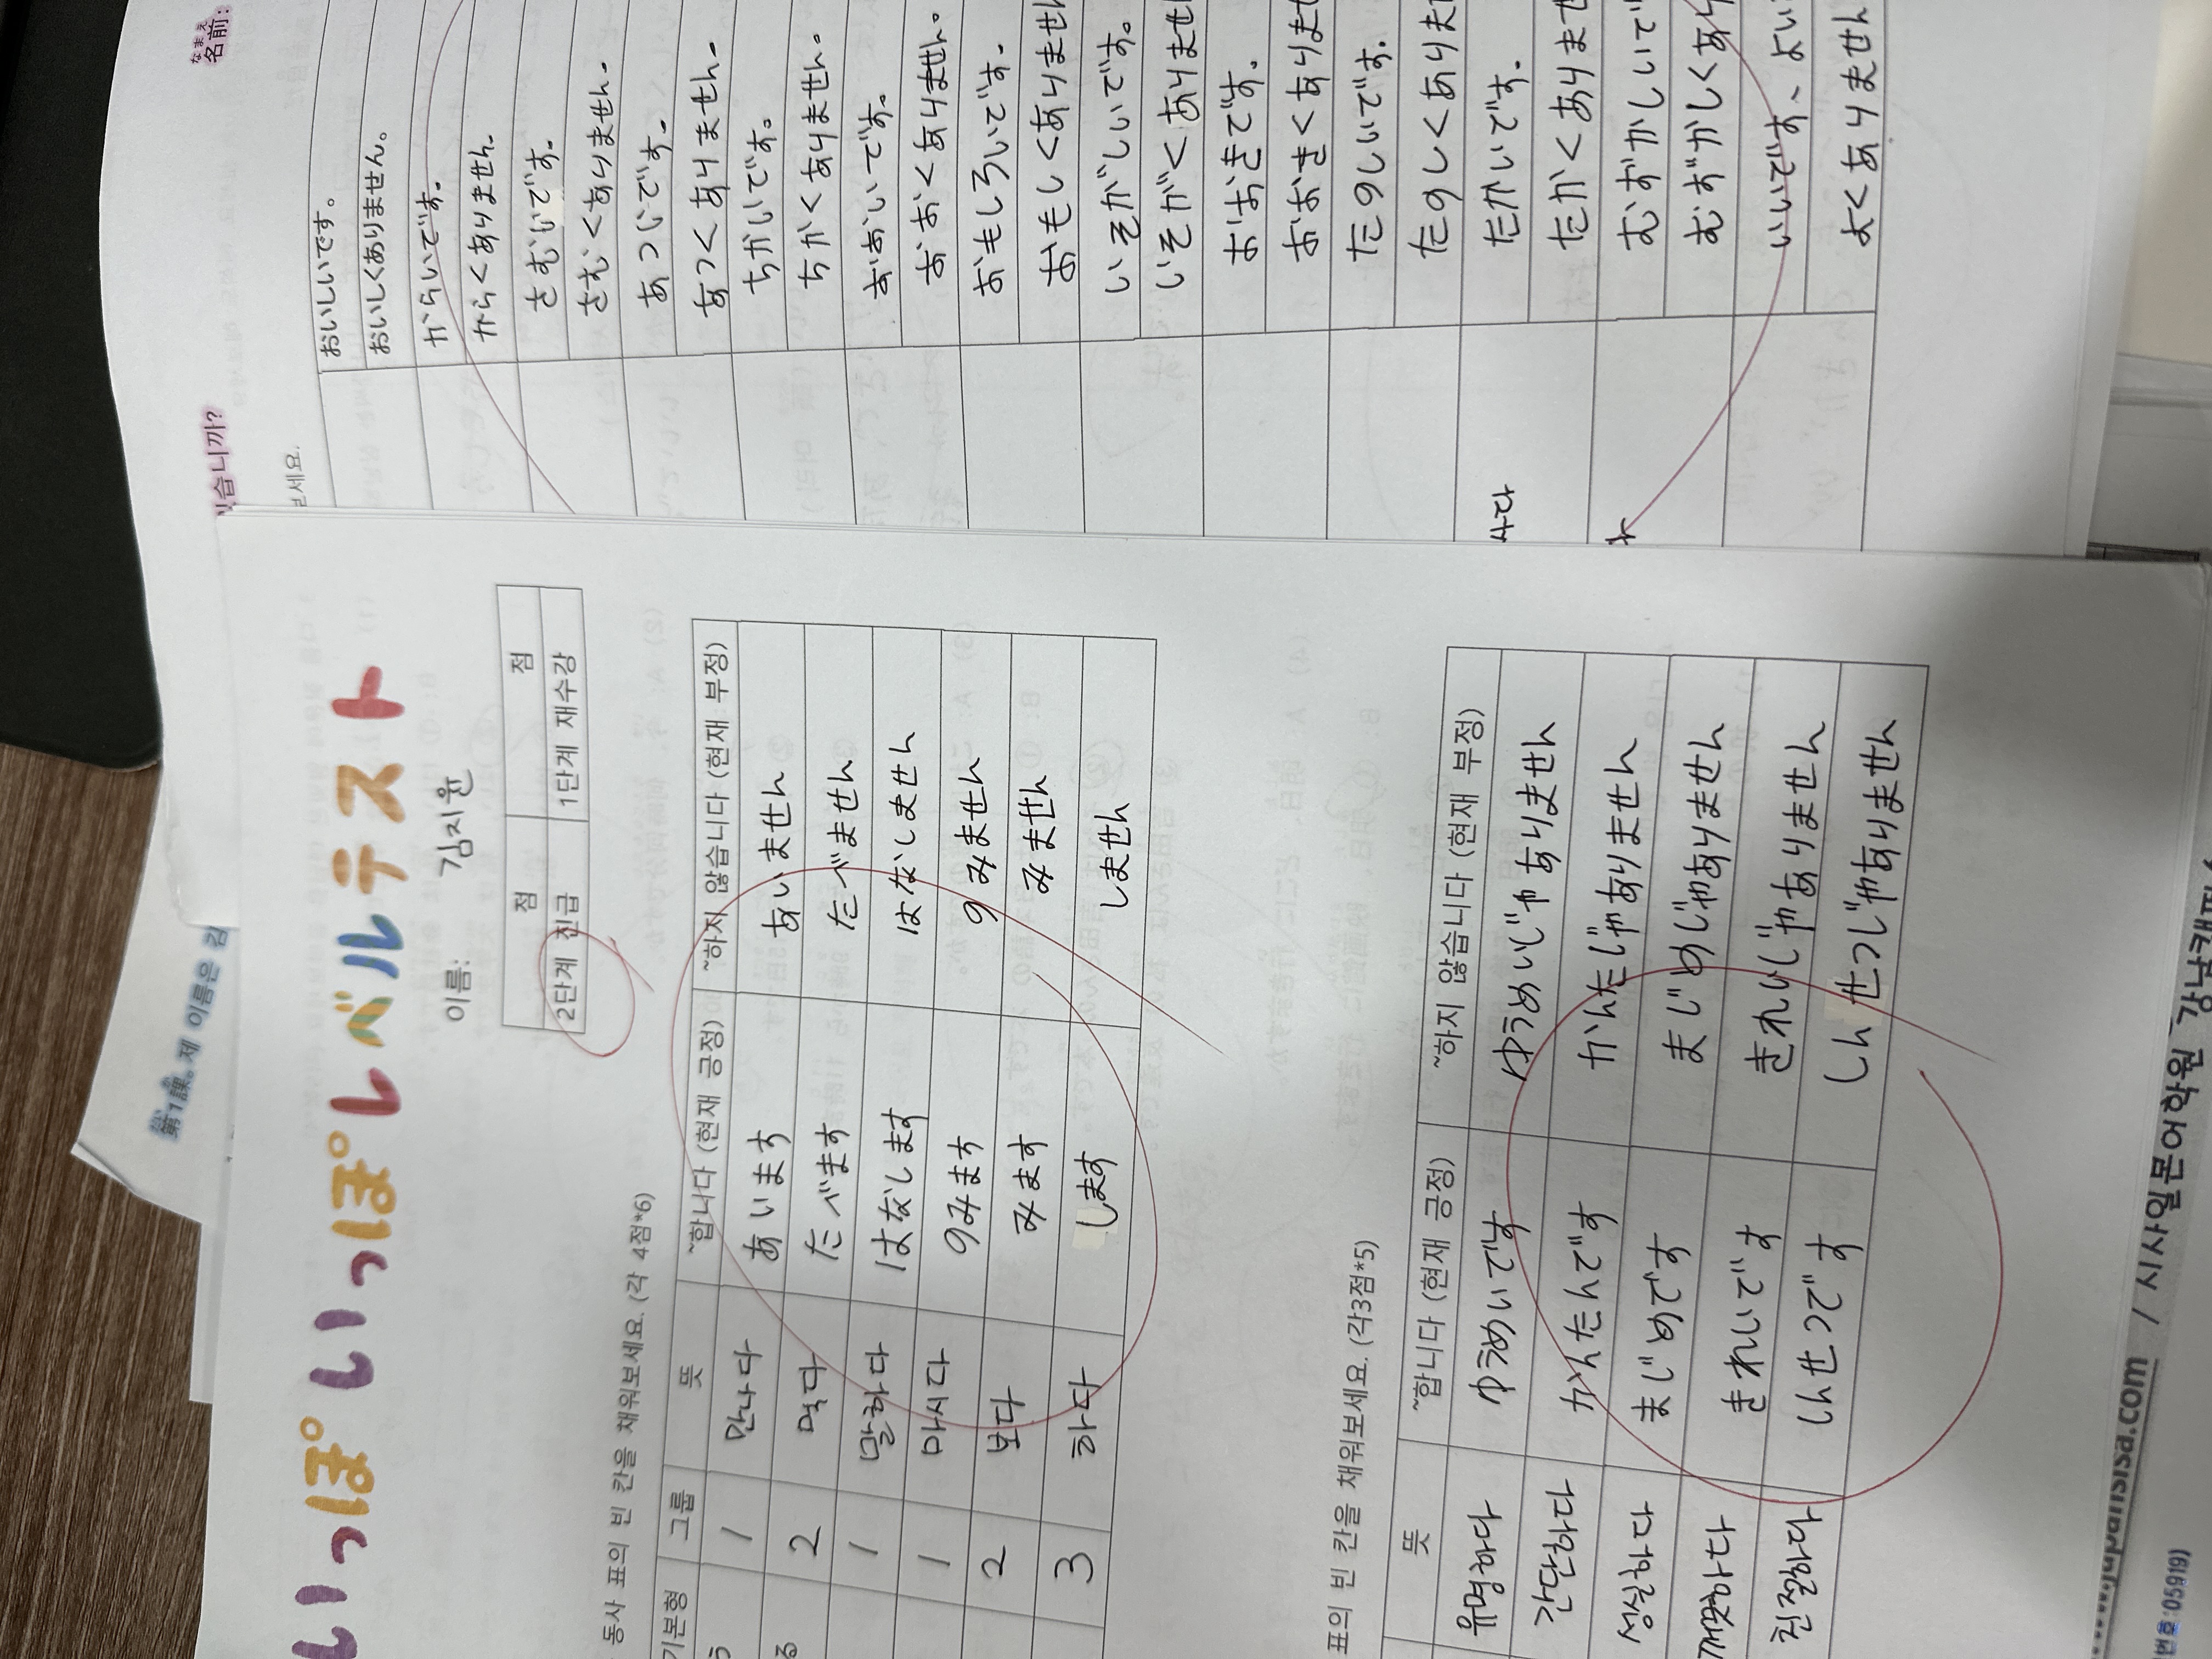 なまえ
名前:
습니까?
보세요.
おいしいです。
おいしくありません。
からいです。
からくありません.
さむいです.
さむくありません.
あついです.
あつくありません.
ちかいです。
ちかくありません。
おおいです。
おおくありません。
おもしろいです.
おもしくありませ
いそがしいです。
いそがくありませ
おおきです.
おおきくありま
たのしいです.
たのしくあり
たかいです.
たかくありま
むずかしいで
むずかしくあ
いいです、よい
よくありません
第1課。제 이름은 김
いっぽいっぽレベルテスト
이름: 김지윤
점 점
2단계 진급 1단계 재수강
동사 표의 빈 칸을 채워보세요. (각 4점*6)
기본형 그룹 뜻 ~합니다 (현재 긍정) ~하지 않습니다 (현재 부정)
う 1 만나다 あいます あいません
る 2 먹다 たべます たべません
1 말하다 はなします はなしません
1 마시다 のみます のみません
2 보다 みます みません
3 하다 します しません
표의 빈 칸을 채워보세요. (각3점*5)
뜻 ~합니다 (현재 긍정) ~하지 않습니다 (현재 부정)
유명하다 ゆうめいです ゆうめいじゃありません
간단하다 かんたんです かんたじゃありません
성실하다 まじめです まじめじゃありません
깨끗하다 きれいです きれいじゃありません
친절하다 しんせつです しんせつじゃありません
japansisa.com / 시사일본어학원_강남캠퍼
번호:05919)